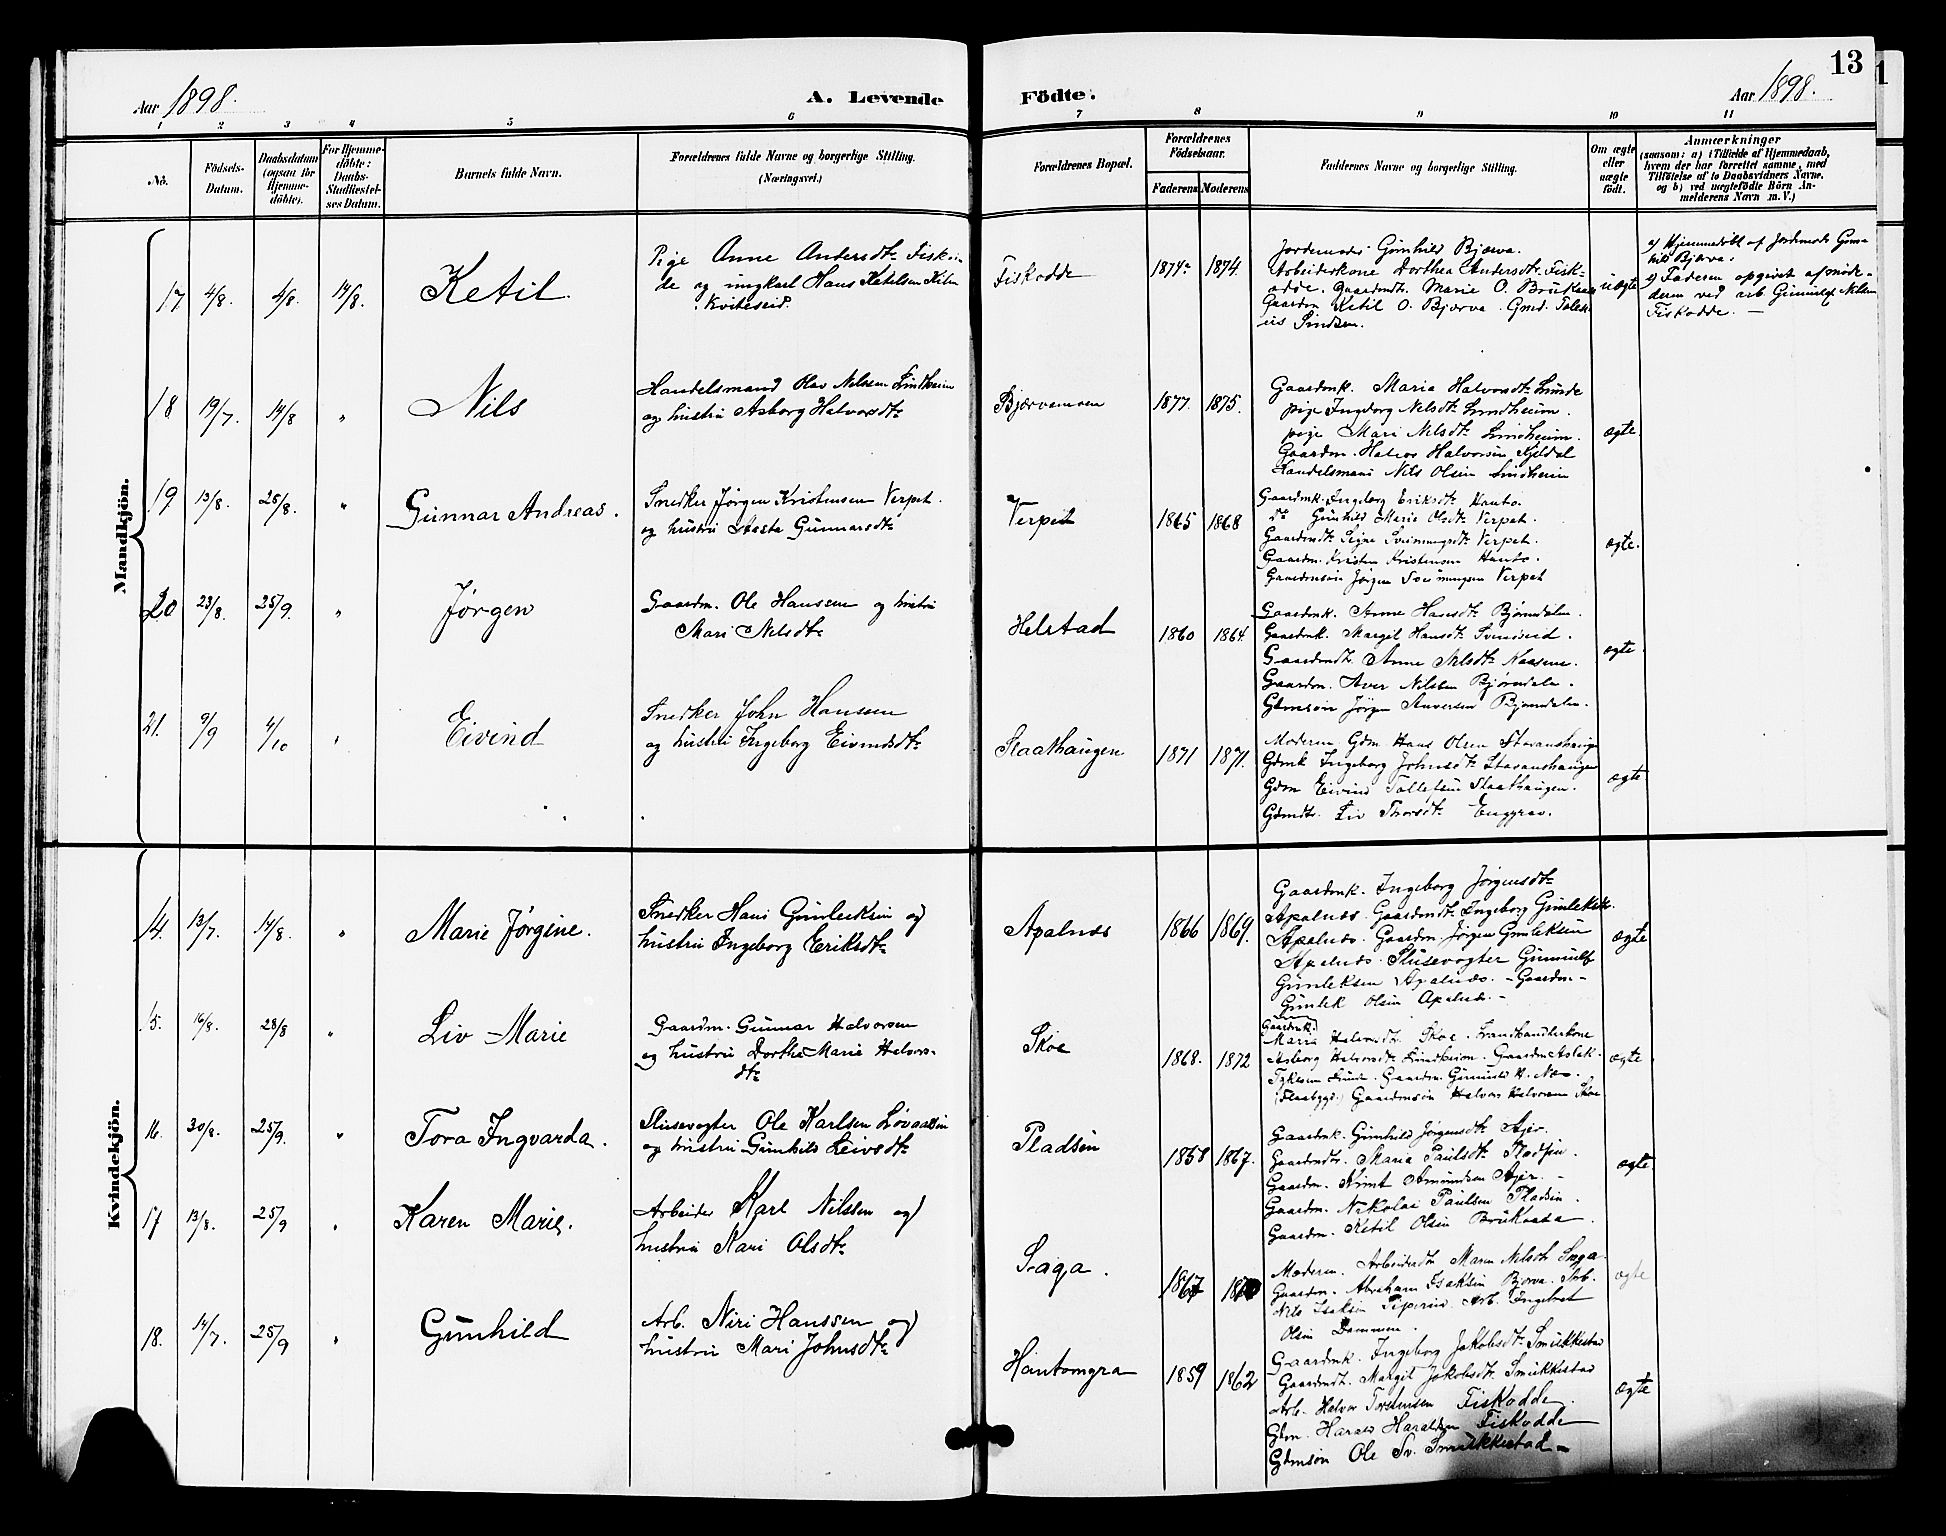 Aar 1898.
A. Levende
Födte.
Aar 1898.
13
1 2 3 4 5 6 7 8 9 10 11
No.
Födsels-Datum.
Daabsdatum (ogsaa for Hjemme-döbte).
For Hjemme-döbte: Daabs-Stadfæstel-ses Datum.
Barnets fulde Navn.
Forældrenes fulde Navne og borgerlige Stilling.
(Næringsvei.)
Forældrenes Bopæl.
Forældrenes Födselsaar.
Faderens Moderens
Faddernes Navne og borgerlige Stilling.
Om ægte eller uægte födt.
Anmærkninger
(saasom: a) i Tilfælde af Hjemmedaab,
hvem der har forrettet samme, med
Tilföielse af to Daabsvidners Navne,
og b) ved uægtefödte Börn An-
melderens Navn m. V.)
Mandkjön.
17 4/8. 4/8. 14/8. Ketil.
Pige Anne Andersdt. Fiskod-
de og ungkarl Hans Ketelsen
Kviteseid.
Fiskodde 1874. 1874.
Jordemoder Gunhild Bjærva.
Arbeiderkone Dorthea Andersdt. Fisk-
odde. Gaardmdt. Marie O. Brukaasa
Gaardm Ketil O. Bjærva. Gmd.
uægte
a) Hjemmedöbt af Jordemoder Gun-
hild Bjærva.
b) Faderen opgivet af mode-
deren ved arb. Gunnulf Nilsen
Fiskodde. —
18 19/7. 14/8 " Nils
Handelsmand Olav Nilssen Lindheim
og hustru Asborg Halvorsdt.
Bjærvamoen 1877. 1875.
Gaardmk. Maria Halvorsdt. Lunde
pige Ingeborg Nilsdt. Lindheim.
pige Mari Nilsdt. Lindheim.
Gaardm. Halvor Halvorsen
Handelsmand Nils Olsen Lindheim
ægte.
19 13/8. 25/8. " Gunnar Andreas.
Snedker Jørgen Kristensen Verpet.
og hustru Aaste Gunnarsdt.
Verpet 1865 1868
Gaardmk. Ingeborg Eriksdt. Hauto.
do Gunhild Marie Olsdt. Verpet.
Gaardmdt. Signe Sveinungsdt. Verpet.
Gaardm. Kristen Kristensen Hauto.
Gaardmsøn Jørgen Sveinungsen Verpet
ægte.
20 23/8. 25/9. " Jørgen
Gaardm. Ole Hanssen og hustru
Mari Nilsdt.
Helstad 1860 1864.
Gaardmk. Anne Hansdt. Bjørndalen.
Gaardmk. Margit Hansdt.
Gaardmdt. Anne Nilsdt. Kaasene.
Gaardm. Aver Nilsen Bjørndalen.
Gdmsøn Jørgen Aversen Bjørndalen.
ægte.
21. 9/9 4/10 " Eivind
Snedker John Hanssen
og hustru Ingeborg Eivindsdt.
Staathaugen 1871 1871.
Moderen Gdm Hans Olsen
Gdmk Ingeborg Johnsdt.
Gdm Eivind Tollefsen Staathaugen.
Gdmdt. Liv Thorsdt. Enggrav.
ægte
Kvindekjön.
14. 13/7. 14/8. " Marie Jørgine.
Snedker Hans Gunleiksen og
hustru Ingeborg Eriksdt.
Apalnæs 1866 1869.
Gaardmk. Ingeborg Jørgensdt.
Apalnæs. Gaardmdt. Ingeborg Gunleiksdt.
Apalnæs. Gaardm. Jørgen Gunleksen
Apalnæs. Slusevogter Gunnulf
Gunleksen Apalnæs. - Gaardm -
Gunlek Olsen Apalnæs. -
ægte
15. 16/8. 28/8 " Liv Marie
Gaardm. Gunnar Halvorsen
og hustru Dorthe Marie Halvors-
dt.
Skoe 1868. 1872
Gaardmk.
Maria Halvorsdt. Skoe.
Asborg Halvorsdt. Lindheim. Gaardm Aslak
Gaardm.
(Flaabygd.) Gaardmsøn Halvor Halvorsen Skoe
ægte.
16. 30/8. 25/9. " Tora Ingvarda.
Slusevogter Ole Karlsen Lövaasen
og hustru Gunhild Leivsdt.
Pladsen 1858 1867.
Gaardmk. Gunhild Jørgensdt. Ajer.
Gaardmdt. Maria Paulsdt. Pladsen.
Gaardm. Knut Amundsen Ajer. -
Gaardm. Nikolai Paulsen Pladsen.
Gaardm. Ketil Olsen Brukaasa.
ægte.
17 13/8. 25/9 " Karen Marie.
Arbeider Karl Nilssen og
hustru Kari Olsdt.
Saga. 1867
Moderen. Arbeiderdt Maren Nilsdt. Saga.
Gaardm. Abraham Isaksen Bjerva. Arb.
Nils Isaksen Arb. Ingebret
Olsen Dammen.
ægte
18. 14/7. 25/9 " Gunhild
Arb. Niri Hanssen og
hustru Mari Johnsdt.
Hantomgra 1859 1862
Gaardmk. Ingeborg Jakobsdt. Smukkestad
Gaardmdt. Margit Jakobsdt. Smukkestad
Arb. Halvor Torstensen Fiskodde
Gdm. Harald Haraldsen Fiskodde
Gdmsøn Ole Sv. Smukkestad -
ægte